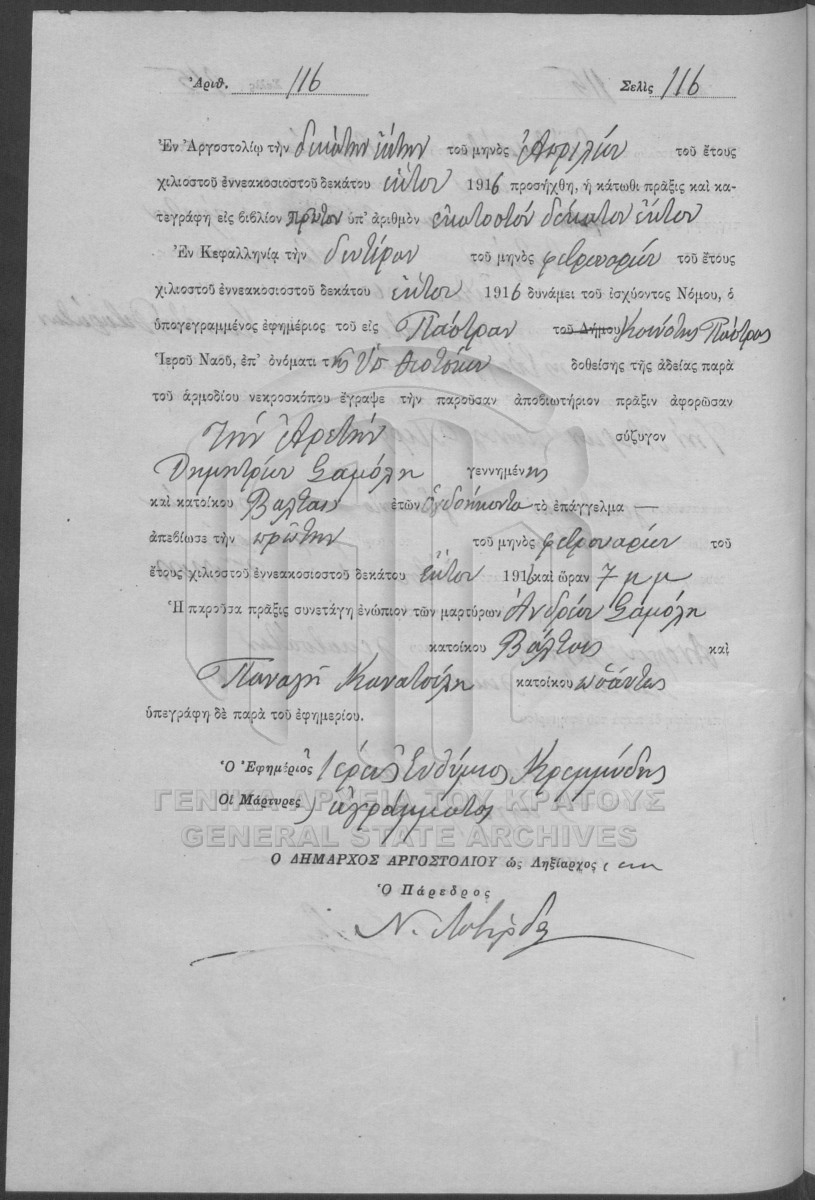 Ἀριθ. 116 Σελὶς 116
Ἐν Ἀργοστολίῳ τὴν δεκάτην ἕκτην τοῦ μηνὸς Ἀπριλίου τοῦ ἔτους
χιλιοστοῦ ἐννεακοσιοστοῦ δεκάτου ἕκτου 1916 προσήχθη, ἡ κάτωθι πρᾶξις καὶ κα-
τεγράφη εἰς βιβλίον πρῶτον ὑπ' ἀριθμὸν ἑκατοστόν δέκατον ἕκτον
Ἐν Κεφαλληνίᾳ τὴν δευτέραν τοῦ μηνὸς φεβρουαρίου τοῦ ἔτους
χιλιοστοῦ ἐννεακοσιοστοῦ δεκάτου ἕκτου 1916 δυνάμει τοῦ ἰσχύοντος Νόμου, ὁ
ὑπογεγραμμένος ἐφημέριος τοῦ εἰς Πάστραν τοῦ Δήμου Κοινότης Πάστρας
Ἱεροῦ Ναοῦ, ἐπ' ὀνόματι τῆς Ὑπ Θεοτόκου δοθείσης τῆς ἀδείας παρὰ
τοῦ ἁρμοδίου νεκροσκόπου ἔγραψε τὴν παροῦσαν ἀποβιωτήριον πρᾶξιν ἀφορῶσαν
τὴν Ἀρετὴν σύζυγον
Δημητρίου Σαμόλη γεννημένης
καὶ κατοίκου Βάλτας ἐτῶν ὀγδοήκοντα τὸ ἐπάγγελμα —
ἀπεβίωσε τὴν πρώτην τοῦ μηνὸς φεβρουαρίου τοῦ
ἔτους χιλιοστοῦ ἐννεακοσιοστοῦ δεκάτου ἕκτου 1916 καὶ ὥραν 7 μ μ
Ἡ παροῦσα πρᾶξις συνετάγη ἐνώπιον τῶν μαρτύρων Ἀνδρέου Σαμόλη
κατοίκου Βάλτας καὶ
Παναγῆ Κανατσίλη κατοίκου ὡσαύτως
ὑπεγράφη δὲ παρὰ τοῦ ἐφημερίου.
Ὁ Ἐφημέριος Ἱερεὺς Εὐθύμιος Κρεμμύδης
Οἱ Μάρτυρες ἀγράμματοι
ΓΕΝΙΚΑ ΑΡΧΕΙΑ ΤΟΥ ΚΡΑΤΟΥΣ
GENERAL STATE ARCHIVES
Ο ΔΗΜΑΡΧΟΣ ΑΡΓΟΣΤΟΛΙΟΥ ὡς Ληξίαρχος
Ὁ Πάρεδρος